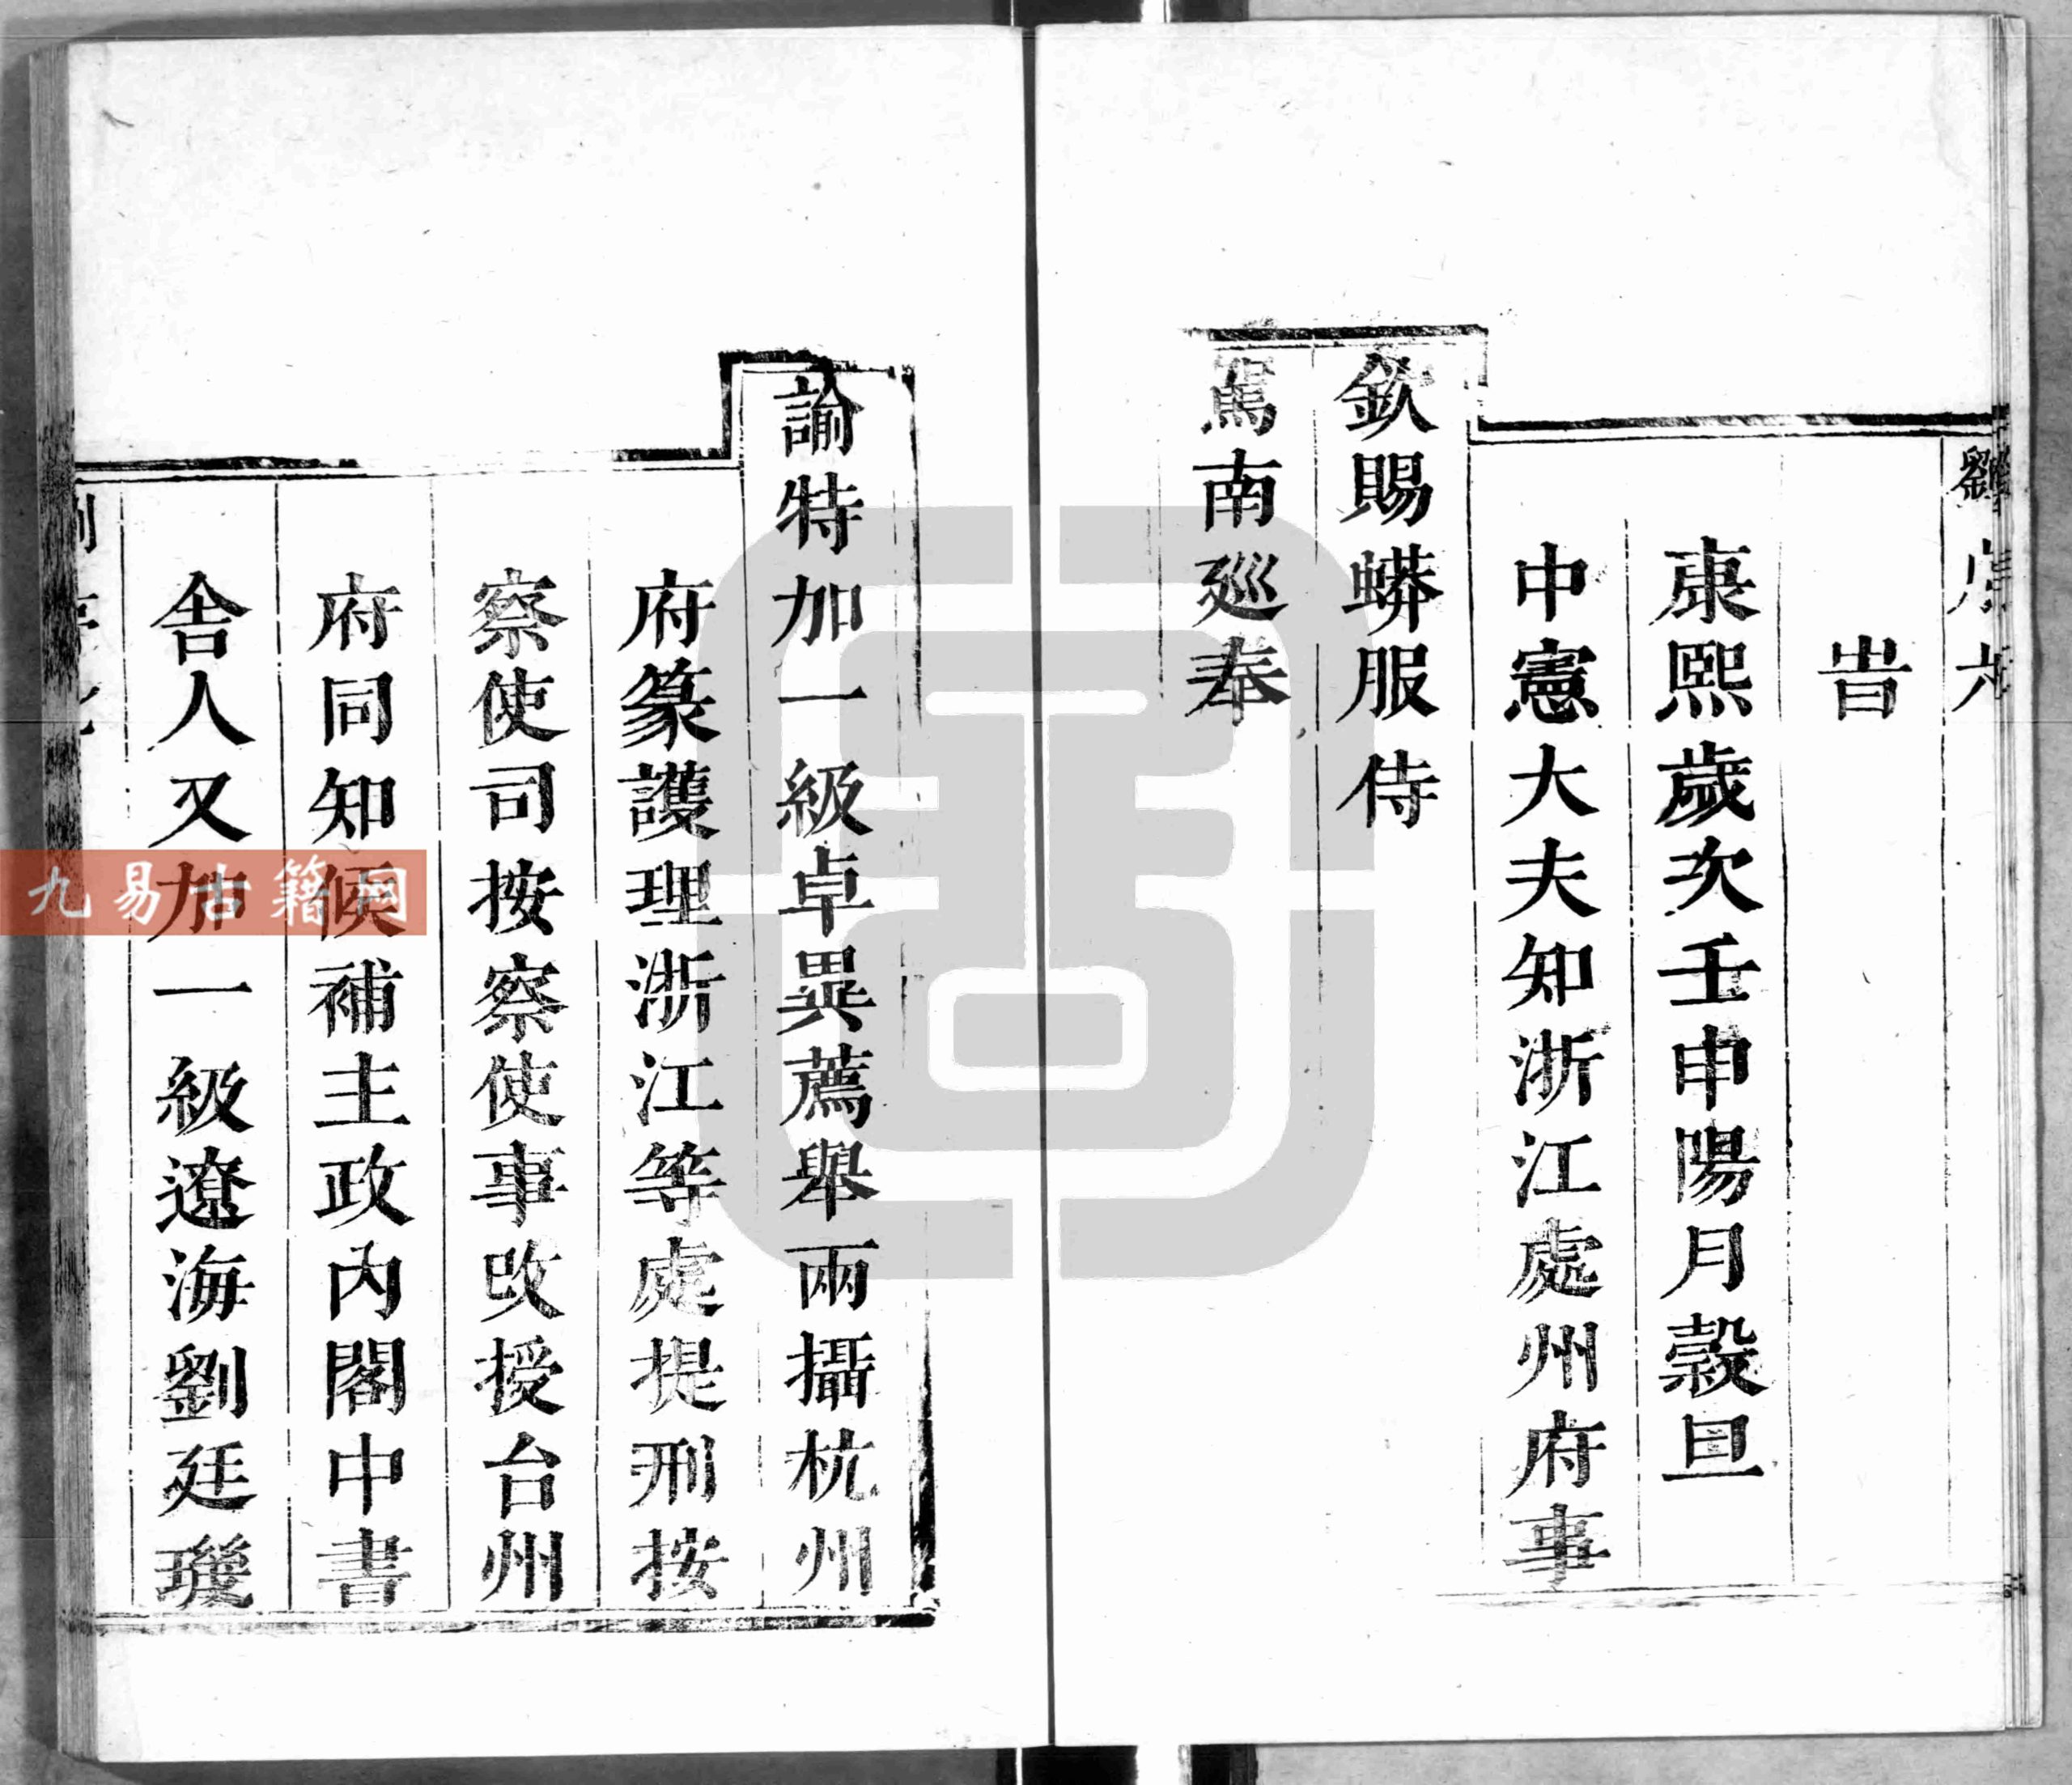 劉序
旹
康熙歲次壬申陽月穀旦
中憲大夫知浙江處州府事
欽賜蟒服侍
駕南廵奉
諭特加一級卓異薦舉兩攝杭州
府篆護理浙江等處提刑按
察使司按察使事改授台州
府同知候補主政內閣中書
舍人又加一級遼海劉廷璣
九易古籍网